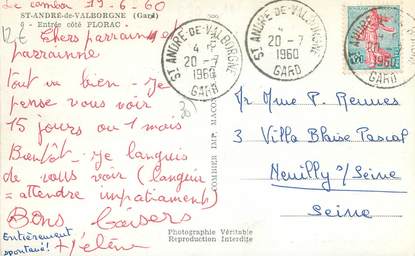 Le cambou 19-6-60
ST-ANDRÉ-de-VALBORGNE (Gard)
8 - Entrée côté FLORAC -
12€
Chers parrain et
parrainne
tout va bien - Je
pense vous voir
15 jours ou 1 mois
Bientôt - Je languis
de vous voir (languir
= attendre impatiament)
Bons baisers
Hélène
Entièrement
spontané!
COMBIER IMP. MACON
Photographie Véritable
Reproduction Interdite
ST ANDRÉ-DE-VALBORGNE
20-7
1960
GARD
ST ANDRÉ-DE-VALBORGNE
20-7
1960
GARD
ST ANDRÉ
20
1960
GARD
Mr Mme P. Rennes
3 Villa Blaise Pascal
Neuilly s/ Seine
Seine